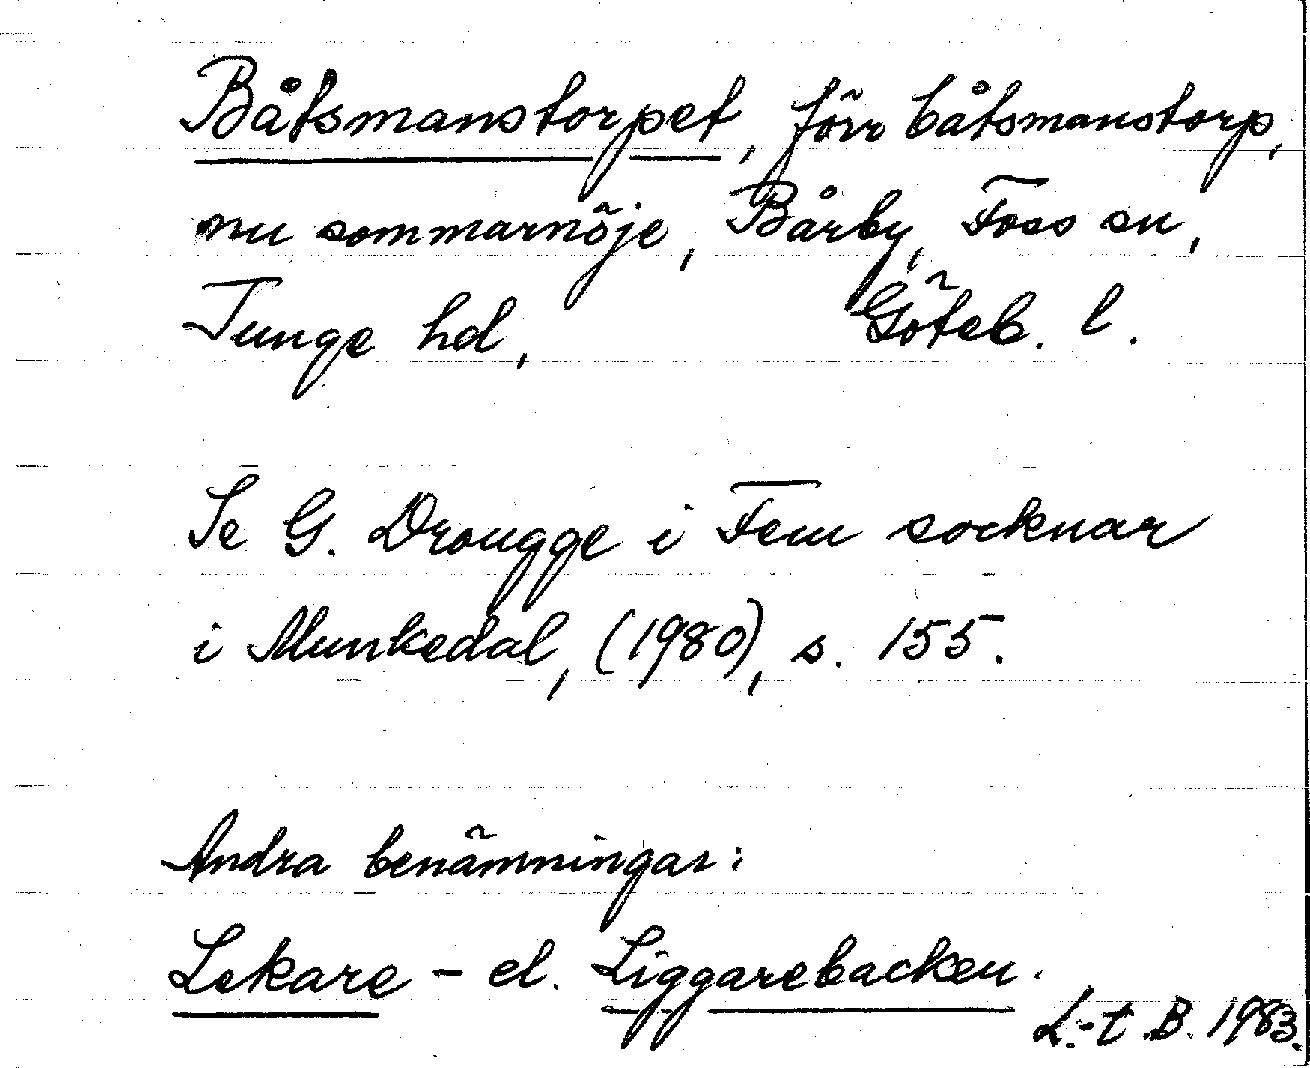 Båtsmanstorpet, förr båtsmanstorp,
nu sommarnöje, Bårby, Foss sn,
Tunge hd, Göteb. l.
Se G. Drougge i Fem socknar
i Munkedal, (1980), s. 155.
Andra benämningar:
Lekare - el. Liggarebacken.
L.-t B. 1983.